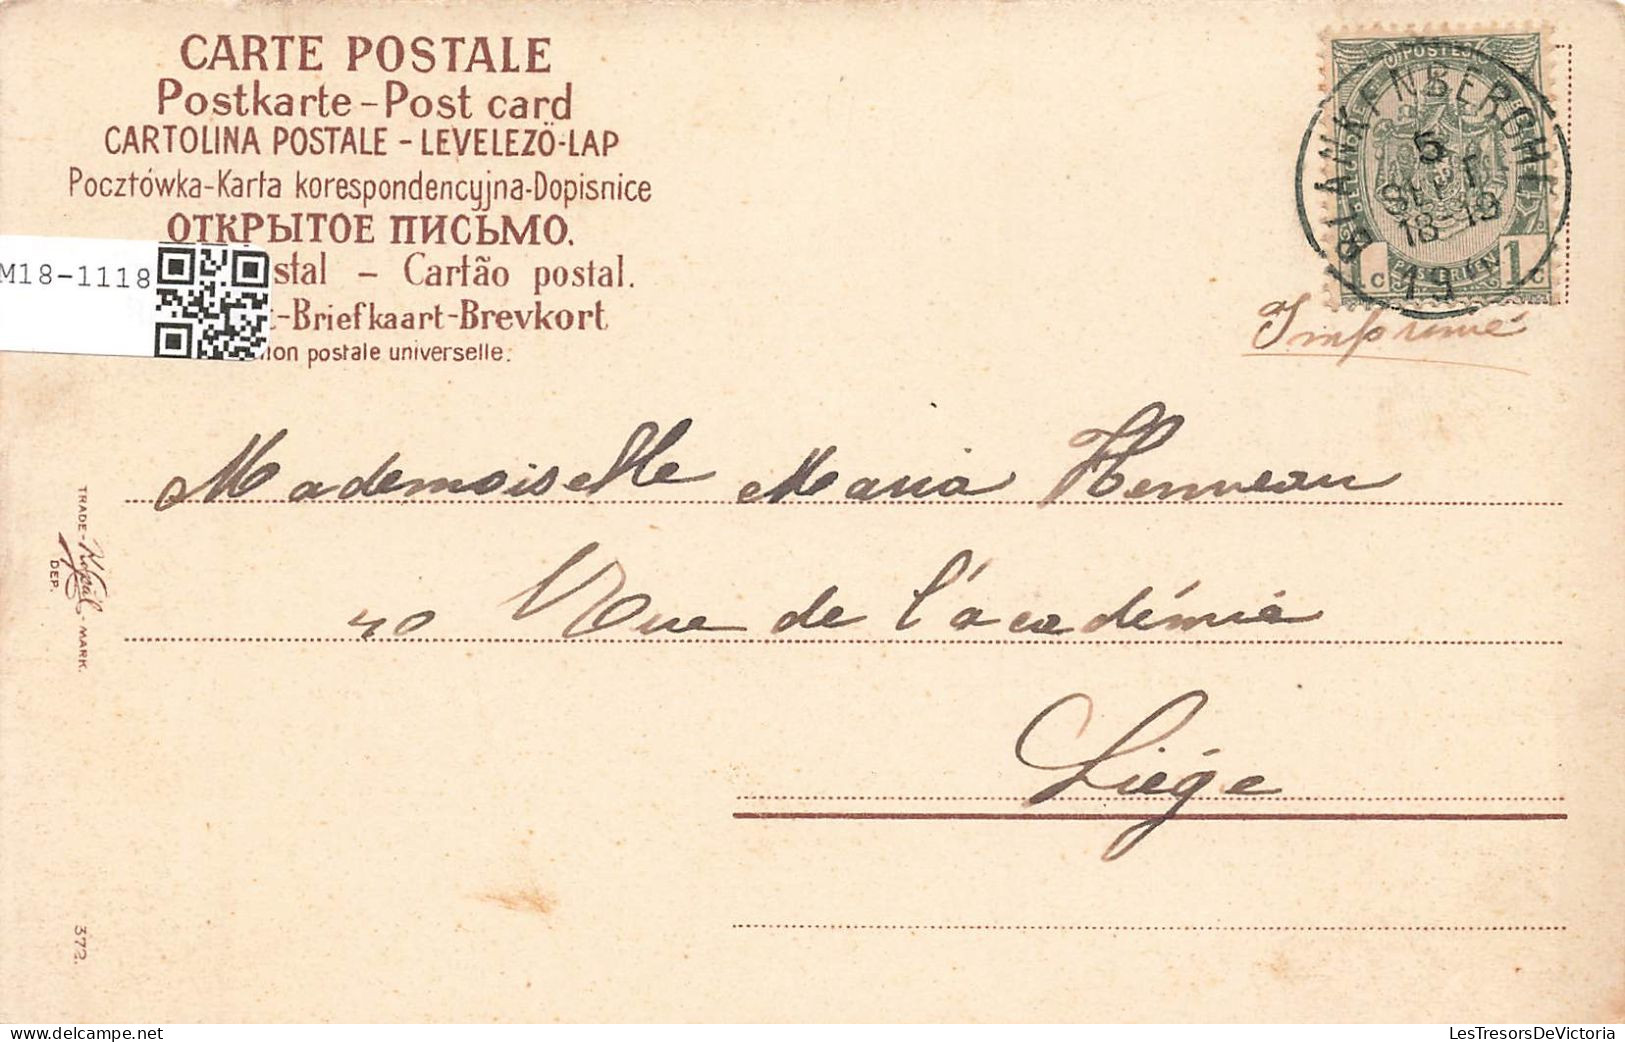 CARTE POSTALE
Postkarte-Post card
CARTOLINA POSTALE - LEVELEZÖ-LAP
Pocztówka-Karta korespondencyjna-Dopisnice
ОТКРЫТОЕ ПИСЬМО.
stal - Cartão postal.
-Briefkaart-Brevkort
ion postale universelle.
M18-1118
POSTES
BLANKENBERGHE
5
SEPT
18-19
19
1c
1c
Imprimé
Mademoiselle Maria Henneau
40 Rue de l'académie
Liége
TRADE-
MARK.
DEP.
372.
LesTresorsDeVictoria